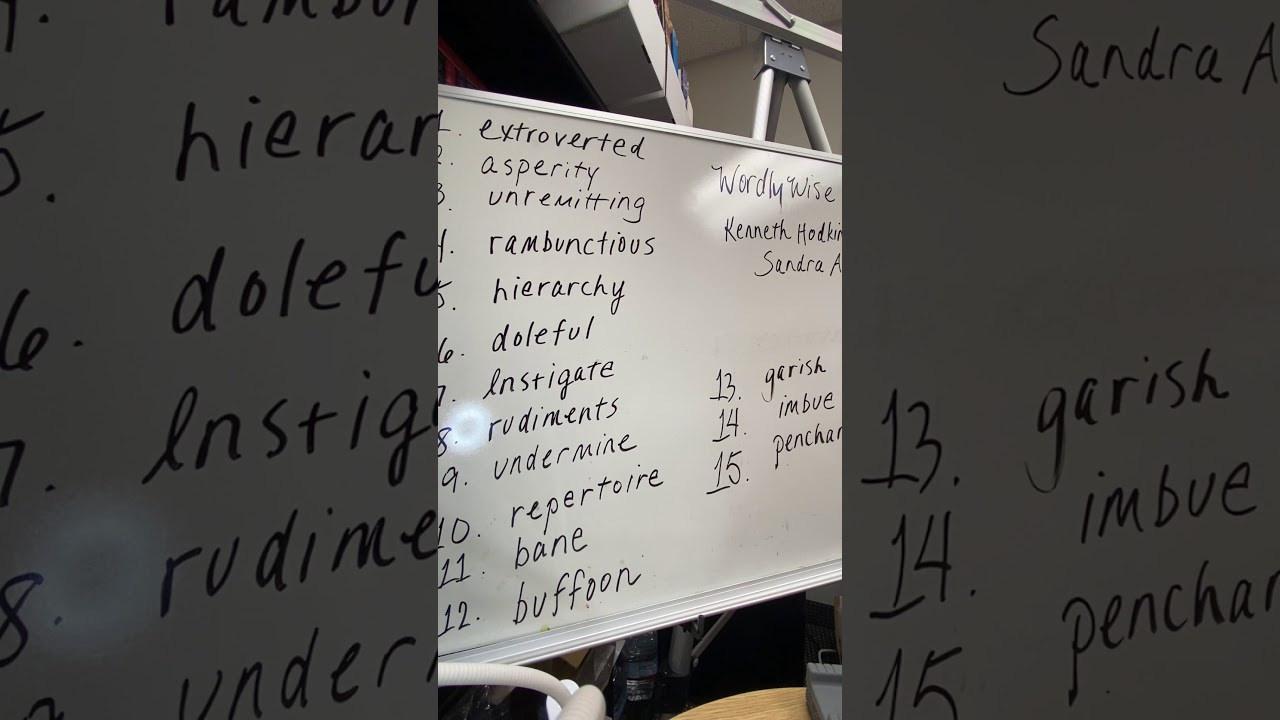 1. extroverted
2. asperity
3. unremitting
4. rambunctious
5. hierarchy
6. doleful
7. Instigate
8. rudiments
9. undermine
10. repertoire
11. bane
12. buffoon
Wordly Wise
Kenneth Hodkin
Sandra A
13. garish
14. imbue
15. penchan